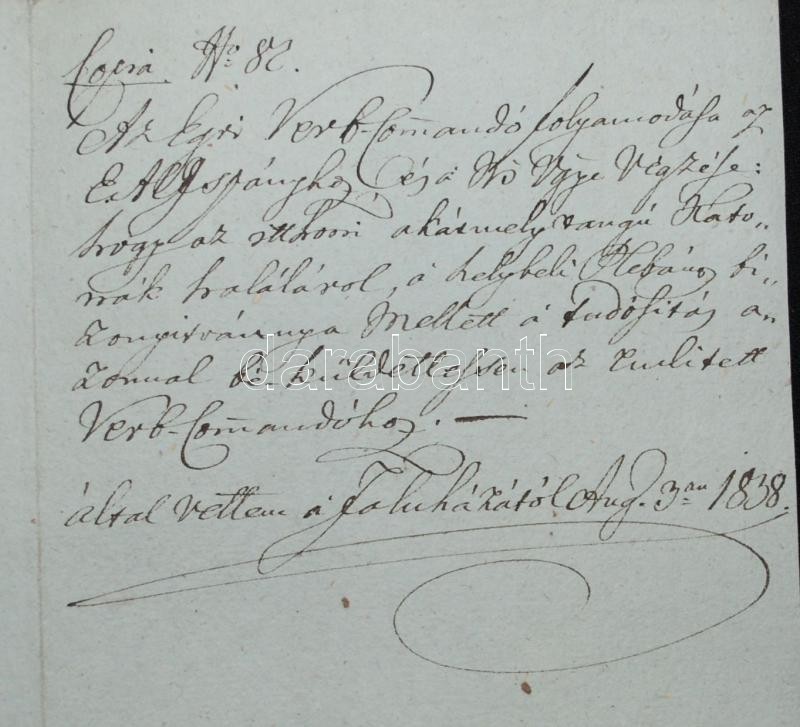 Copia No. 82.
Az Egri Verb-Com̅andó folyamodása az
E. Al Ispánhoz, és a Ns Vgye Végzése:
hogy az itthoni akármely rangú Kato„
nák haláláról, á helybeli Plebános bi„
zonyitvánnya Mellett á tudósitás a„
zonnal bé-küldettessen az emlitett
Verb-Com̅andóhoz. —
által vettem á Faluházától Aug. 3án 1838.
darabanth